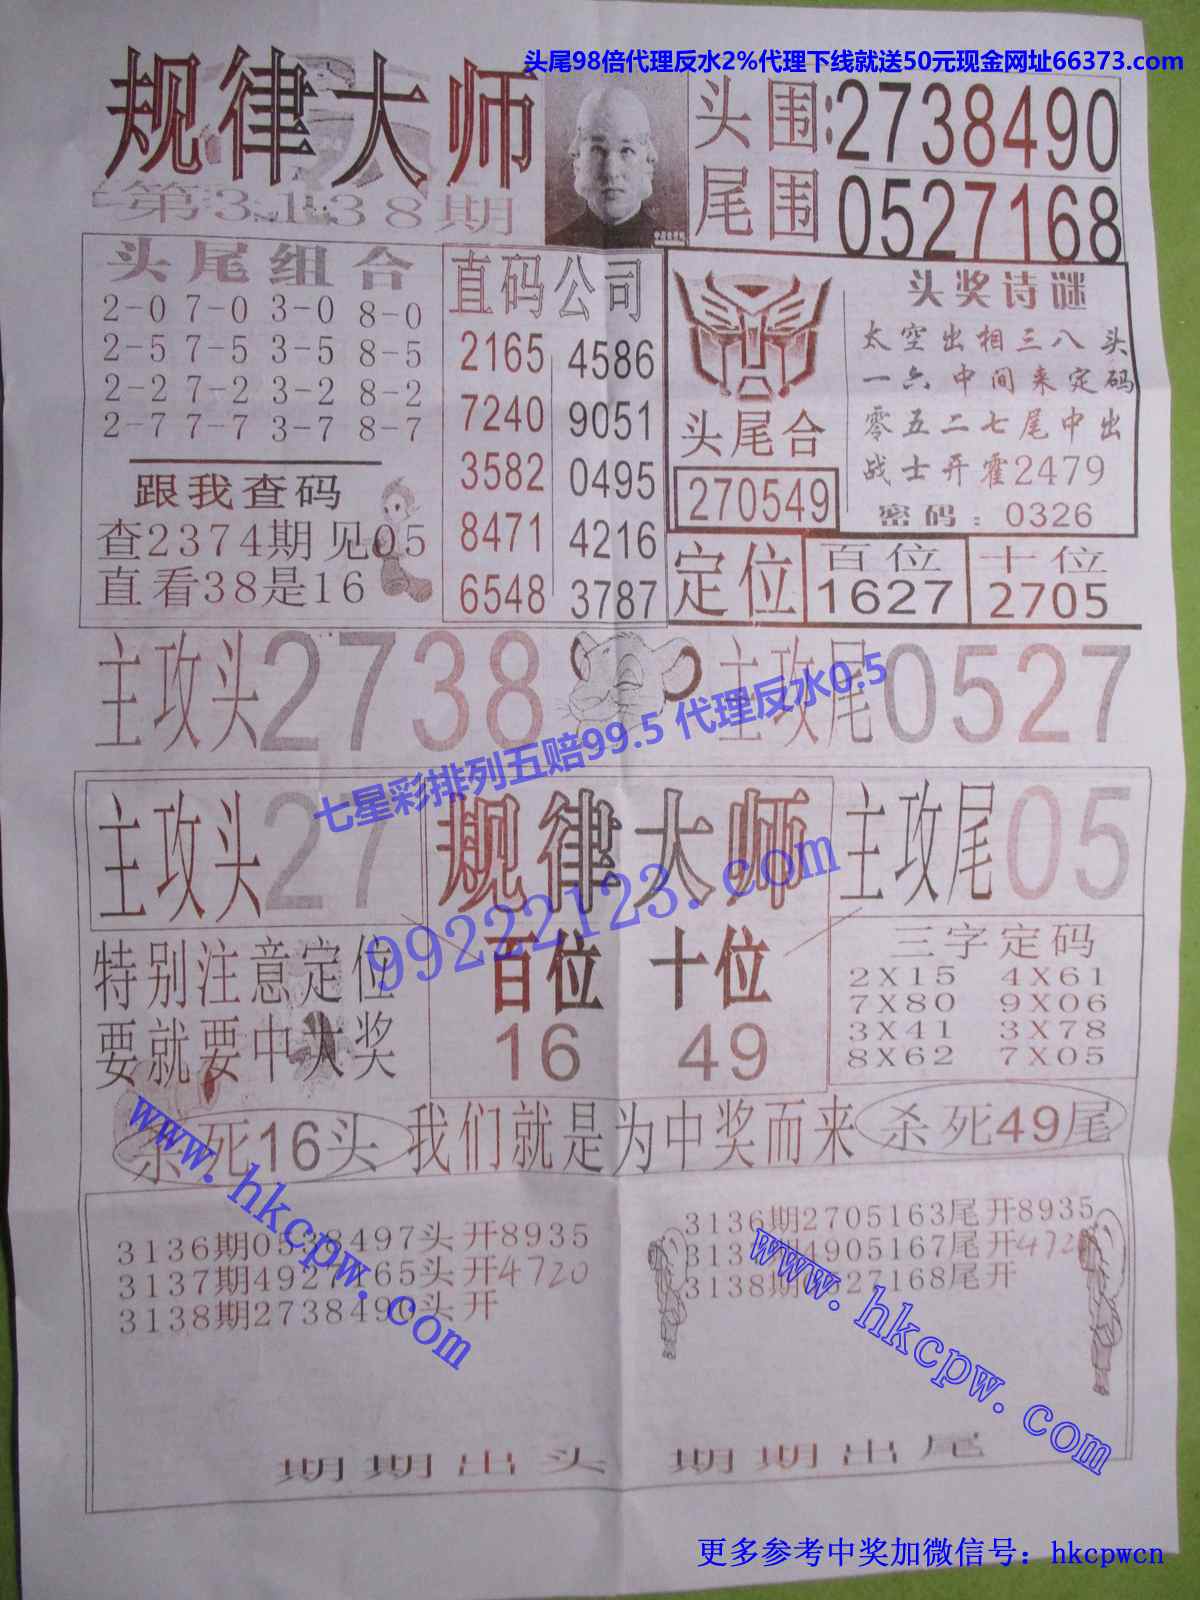 头尾98倍代理反水2%代理下线就送50元现金网址66373.com
规律大师
第3138期
头围:2738490
尾围 0527168
头尾组合
2-0 7-0 3-0 8-0
2-5 7-5 3-5 8-5
2-2 7-2 3-2 8-2
2-7 7-7 3-7 8-7
跟我查码
查2374期见05
直看38是16
直码公司
2165 4586
7240 9051
3582 0495
8471 4216
6548 3787
头尾合
270549
头奖诗谜
太空出相三八头
一六中间来定码
零五二七尾中出
战士开霍2479
密码:0326
定位
百位
1627
十位
2705
主攻头2738
主攻尾0527
七星彩排列五赔99.5 代理反水0.5
99222123.com
主攻头27
规律大师
主攻尾05
特别注意定位
要就要中大奖
百位 十位
16 49
三字定码
2X15 4X61
7X80 9X06
3X41 3X78
8X62 7X05
杀死16头
我们就是为中奖而来
杀死49尾
www.hkcpw.com
3136期0538497头开8935
3137期4927165头开4720
3138期2738490头开
www.hkcpw.com
3136期2705163尾开8935
3137期4905167尾开472
3138期0527168尾开
期期出头
期期出尾
更多参考中奖加微信号：hkcpwcn